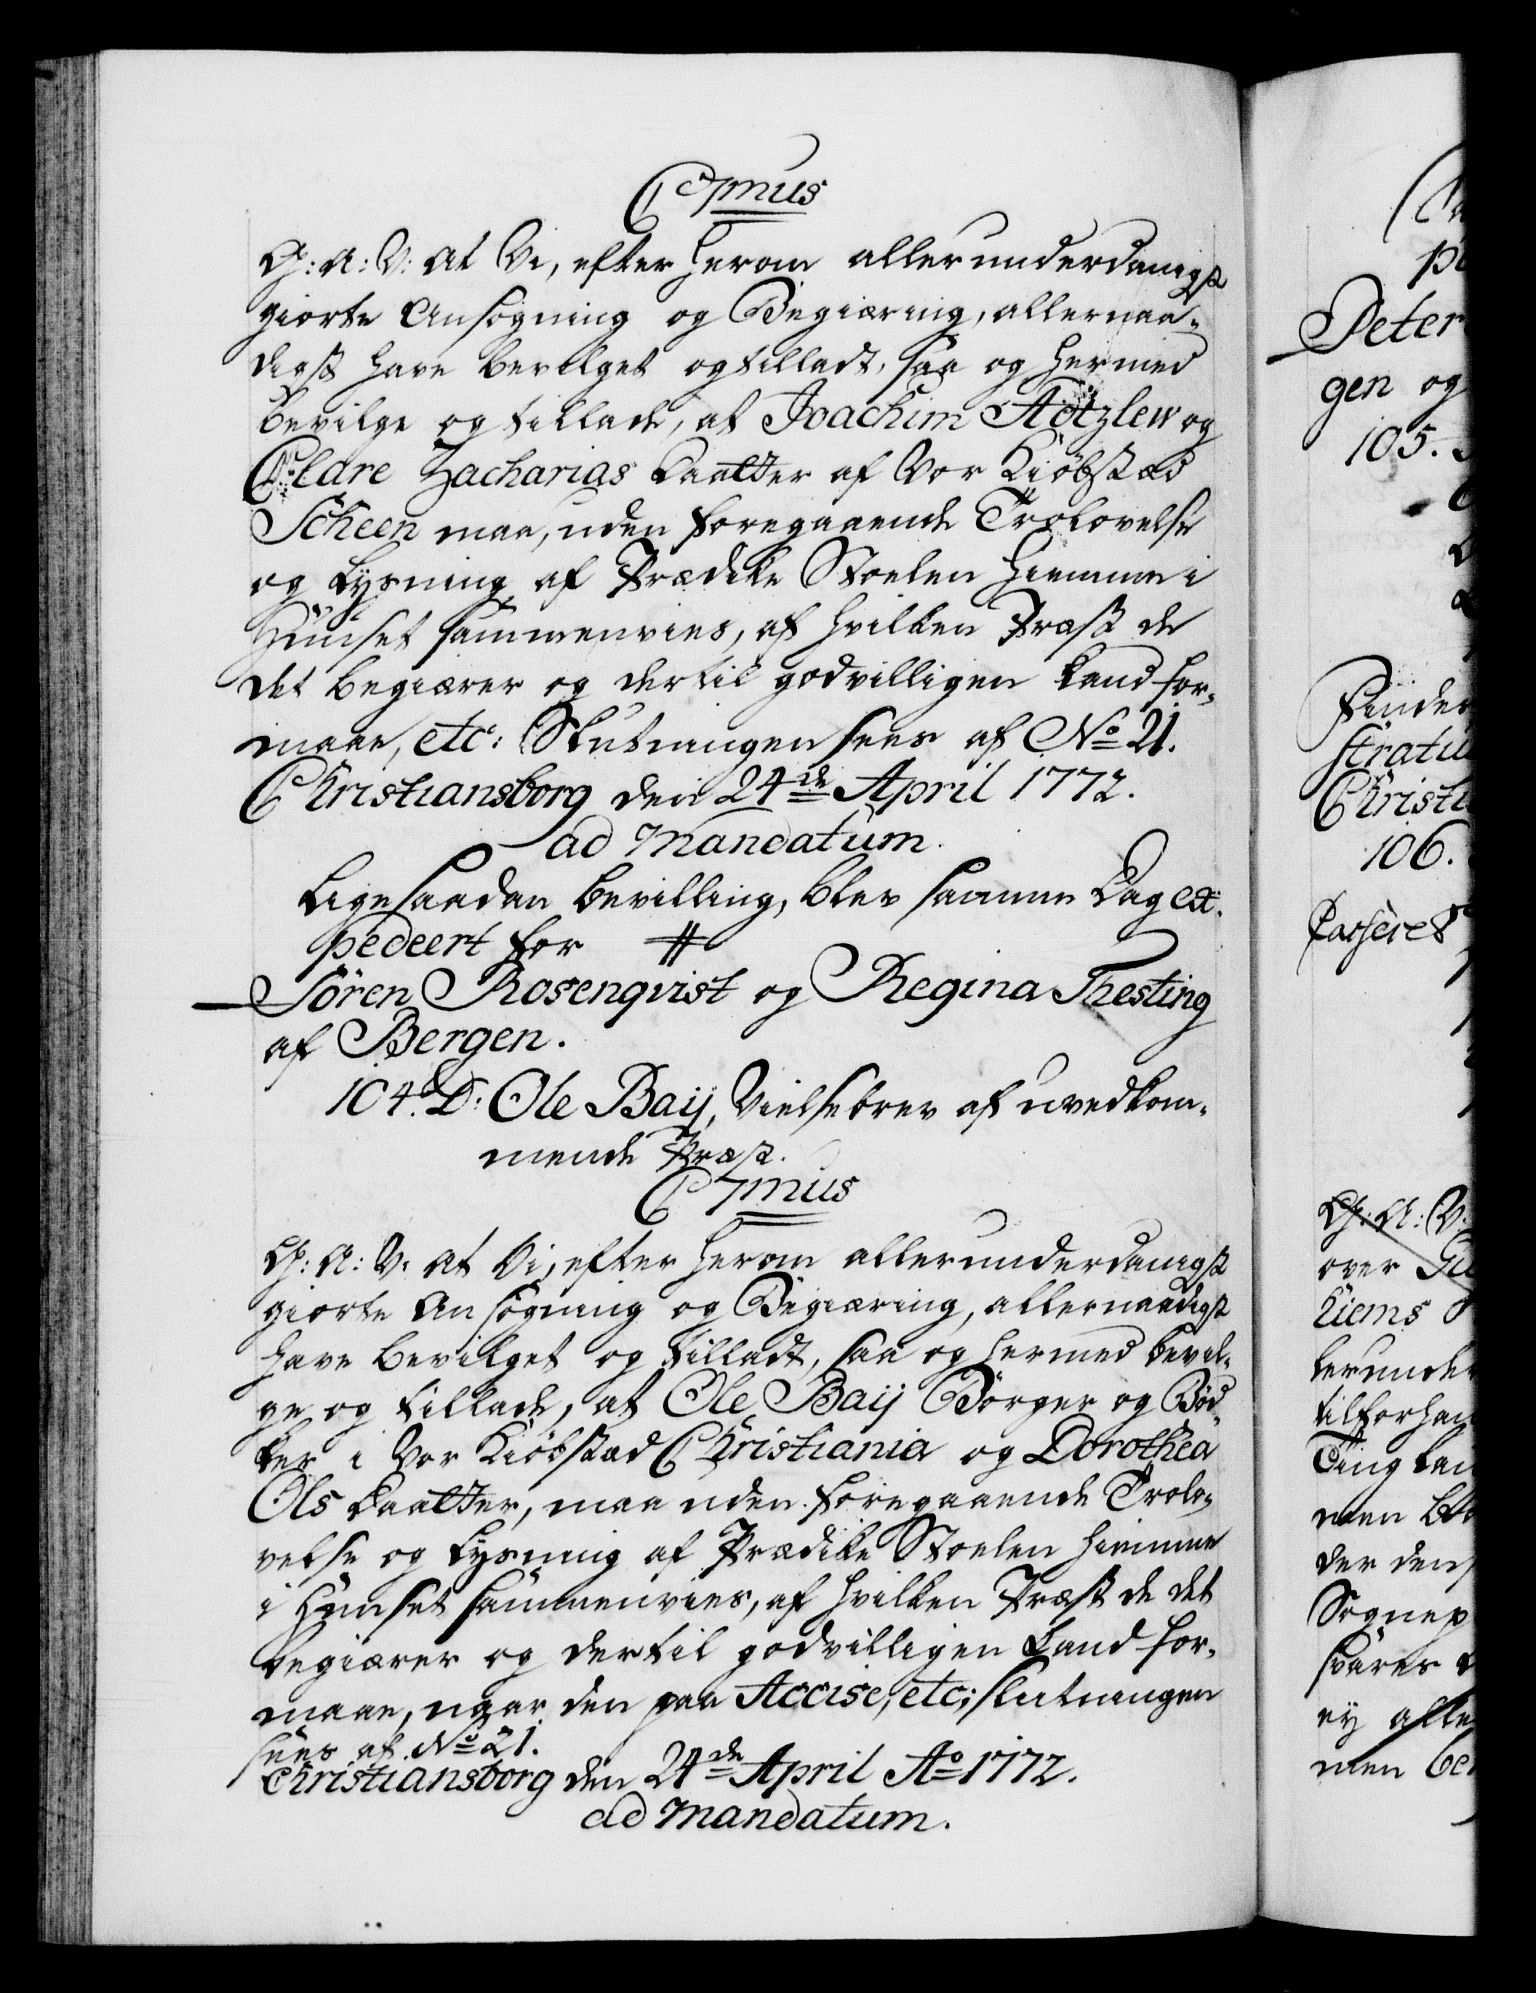 C 7mus
G: A: V: At Vi, efter herom allerunderdanigst
giorte Ansøgning og Begiæring, allernaa-
digst have bevilget og tilladt, saa og hermed
bevilge og tillade, at Joachim Adtzlew og
Clare Zacharias Daatter af Vor Kiøbstæd
Scheen maa, uden foregaaende Trolovelse
og Lysning af Prædike Stoelen hiemme i
Huuset sammenvies, af hvilken Præst de
det begiærer og dertil godvilligen kand for-
maae, etc: Slutningen sees af No 21.
Christiansborg den 24de April 1772.
ad Mandatum.
Ligesaadan bevilling, blev samme Dag ex-
pedeert for #
Sören Rosenqvist og Regina Thesting
af Bergen.
104. D: Ole Baij, Vielsebrev af uvedkom-
mende Præst.
C 7mus
G: A: V: At Vi, efter herom allerunderdanigst
giorte Ansøgning og Begiæring, allernaadigst
have bevilget og tilladt, saa og hermed bevil-
ge og tillade, at Ole Baij Börger og Bød-
ker i Vor Kiöbstæd Christiania og Dorothea
Ols Daatter, maa uden foregaaende Trolo-
velse og Lysning af Prædike Stoelen hiemme
i Huuset sammenvies, af hvilken Præst de det
begiærer og dertil godvilligen kand for-
maae, naar den paa Accise, etc; slutningen
sees af No 21.
Christiansborg den 24de April Ao 1772.
ad Mandatum.
Peter
gen og
105.
Christi
106.
Passeret
G: A: V:
over
tilforhan
Ting
men
der den
Sognep
svares
ey alle
men